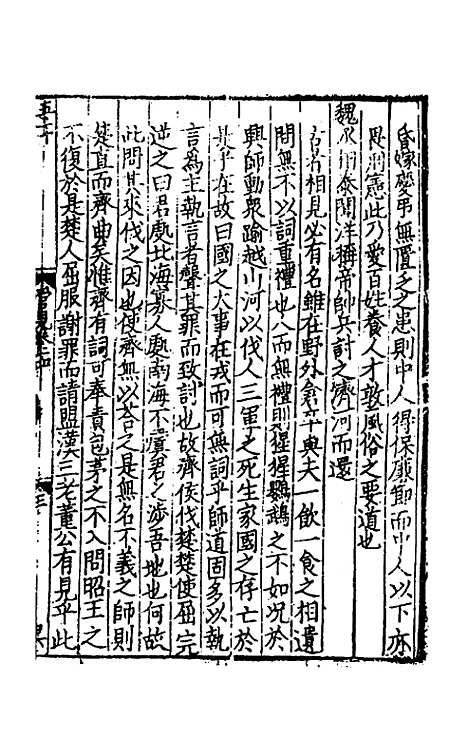 昏嫁喪弔無匱乏之患則中人得保廉節而中人以下亦
畏刑憲此乃愛百姓養人才敦風俗之要道也
魏聞秦闇洋稱帝帥兵討之濟河而還
古者相見必有名雖在野外禽與夫一飲一食之相遺
問無不以詞重禮也人而無禮則猩猩鸚鵡之不如況於
興師動衆踰越山河以伐人三軍之死生家國之存亡於
是乎在故曰國之大事在戎而可無詞乎師道固多以執
言為主執言者聲其罪而致討也故齊侯伐楚楚使屈完
逆之曰君處北海寡人處南海不虞君之涉吾地也何故
此問其來伐之因也使齊無以荅之是無名不義之師則
楚直而齊曲矣惟齊有詞可奉責包茅之不入問昭王之
不復於是楚人屈服謝罪而請盟漢三老董公有見乎此